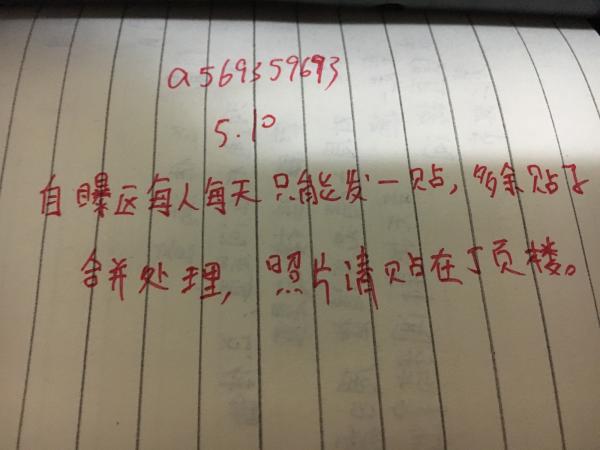 a569359693
5.10
自曝区每人每天只能发一贴,多余贴子
合并处理,照片请贴在顶楼。